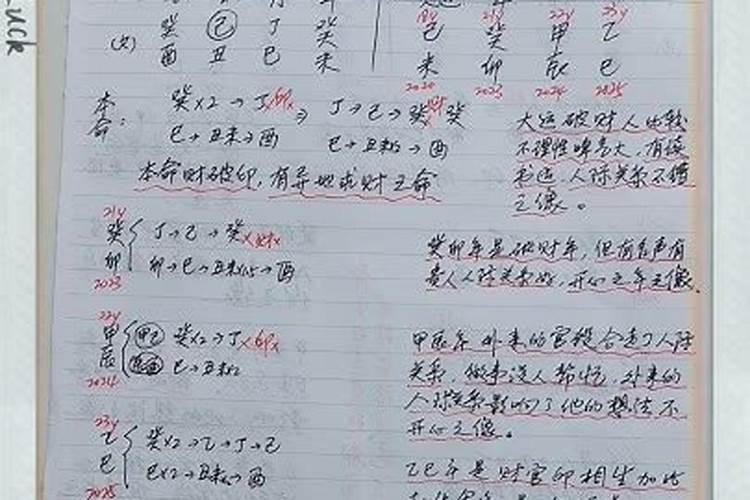 uck
18y 21y 22y 23y
癸 己 丁 癸 己 癸 甲 乙
(女) 酉 丑 巳 未 未 卯 辰 巳
2020 2023 2024 2025
本命: 癸x2→丁x卯x ⇒ 丁→己→癸x财x 癸
巳→丑未→酉 巳→丑未→酉
本命财破印,有异地求财之命
大运破财人比较
不理性啤气大,有
人际关系不错
之像。
21y
癸 丁→己→癸x财x
卯 卯→巳→丑未→酉
2023
癸卯年是破财年,但有名声有
贵人人际关系好,开心之年之像.
22y
甲 甲己 癸x2→丁x印x
辰 辰酉 巳→丑未x2
2024
甲辰年外来的官杀合走了人际
关系,做事没人帮忙,外来的
人际关系影响了他的想法不
开心之像。
23y
乙 癸x2→乙→丁→己
巳 巳x2→丑未→酉
2025
乙巳年是财官印相生加比